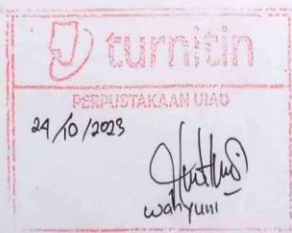 turnitin
PERPUSTAKAAN UIAD
24/10/2023
wahyuni